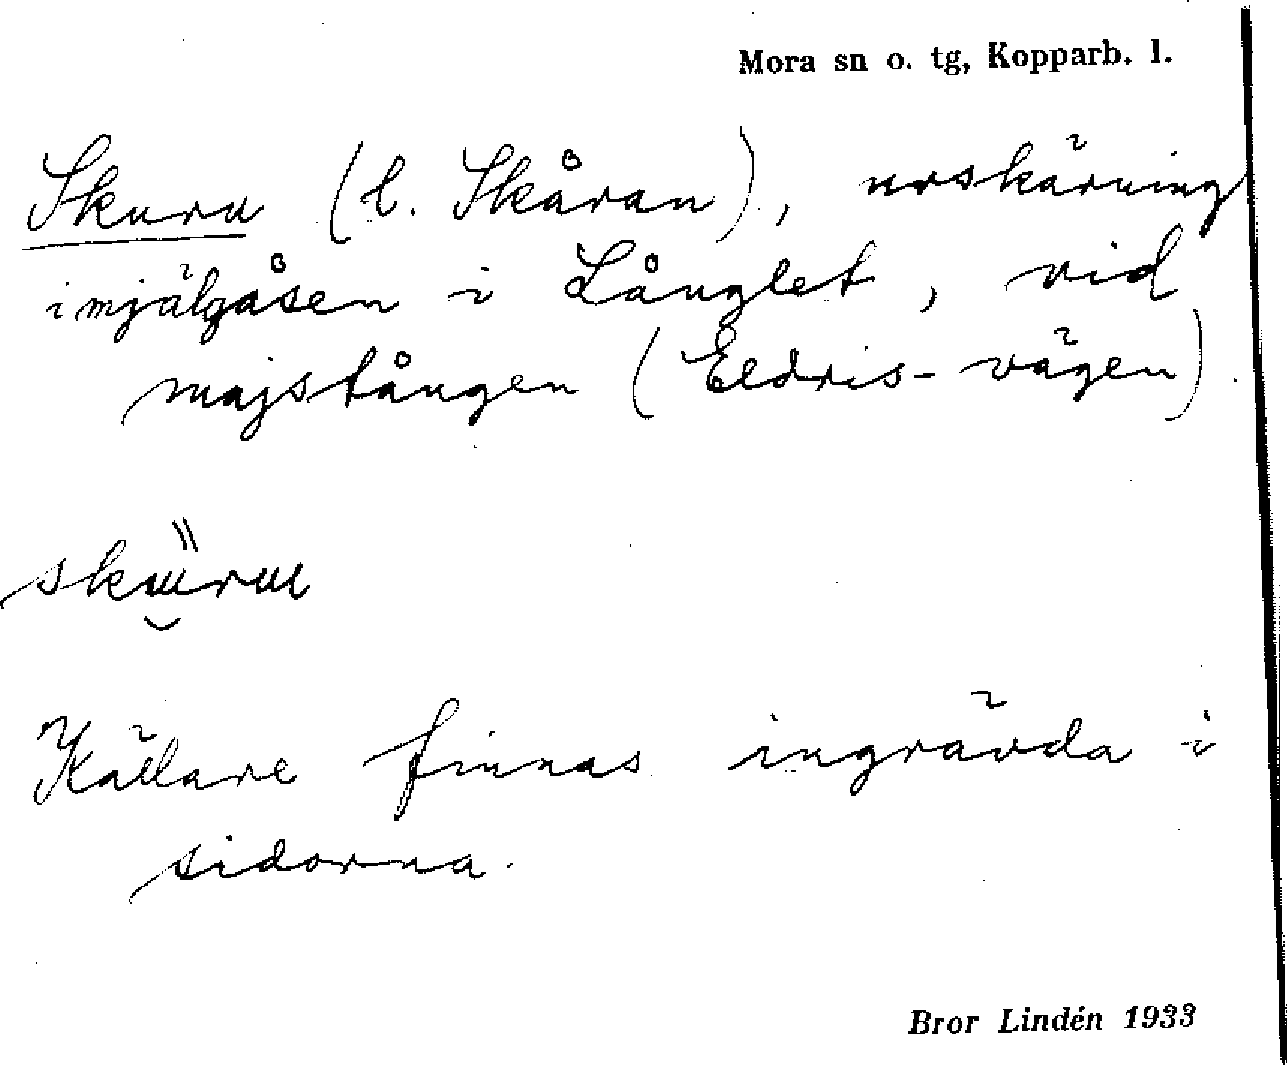 Mora sn o. tg, Kopparb. l.
Skuru (l. Skåran), urskärning
i mjälgåsen i Långlet, vid
majstången (Eldris-vägen)
Källare finnas ingrävda i
sidorna.
Bror Lindén 1933